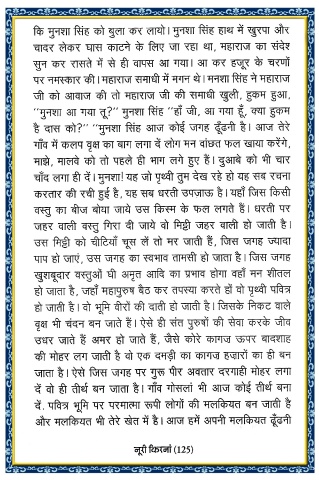 कि मुनशा सिंह को बुला कर लायो। मुनशा सिंह हाथ में खुरपा और
चादर लेकर घास काटने के लिए जा रहा था, महाराज का संदेश
सुन कर रासते में से ही वापस आ गया। आ कर हजूर के चरणों
पर नमस्कार की। महाराज समाधी में मगन थे। मनशा सिंह ने महाराज
जी को आवाज की तो महाराज जी की समाधी खुली, हुकम हुआ,
“मुनशा आ गया तू?” मुनशा सिंह “हाँ जी, आ गया हूँ, क्या हुकम
है दास को?” “मुनशा सिंह आज कोई जगह ढूँढनी है। आज तेरे
गाँव में कलप वृक्ष का बाग लगा दें लोग मन वांछत फल खाया करेंगे,
माझे, मालवे को तो पहले ही भाग लगे हुए हैं। दुआबे को भी चार
चाँद लगा ही दें। मुनशा! यह जो पृथ्वी तुम देख रहे हो यह सब रचना
करतार की रची हुई है, यह सब धरती उपज़ाऊ है। यहाँ जिस किसी
वस्तु का बीज बोया जाये उस किस्म के फल लगते हैं। धरती पर
जहर वाली वस्तु गिरा दी जाये वो मिट्टी जहर वाली हो जाती है।
उस मिट्टी को चीटियाँ चूस लें तो मर जाती हैं, जिस जगह ज्यादा
पाप हो जाएं, उस जगह का स्वभाव तामसी हो जाता है। जिस जगह
खुशबूदार वस्तुओं घी अमृत आदि का प्रभाव होगा वहाँ मन शीतल
हो जाता है, जहाँ महापुरुष बैठ कर तपस्या करते हों वो पृथ्वी पवित्र
हो जाती है। वो भूमि वीरों की दाती हो जाती है। जिसके निकट वाले
वृक्ष भी चंदन बन जाते हैं। ऐसे ही संत पुरुषों की सेवा करके जीव
उधर जाते हैं अमर हो जाते हैं, जैसे कोरे कागज ऊपर बादशाह
की मोहर लग जाती है वो एक दमड़ी का कागज हजारों का ही बन
जाता है। ऐसे जिस जगह पर गुरू पीर अवतार दरगाही मोहर लगा
दें वो ही तीर्थ बन जाता है। गाँव गोसलां भी आज कोई तीर्थ बना
दें. पवित्र भूमि पर परमात्मा रूपी लोगों की मलकियत बन जाती है
और मलकियत भी तेरे खेत में है। आज हमें अपनी मलकियत ढूँढनी
नूरी किरनां (125)